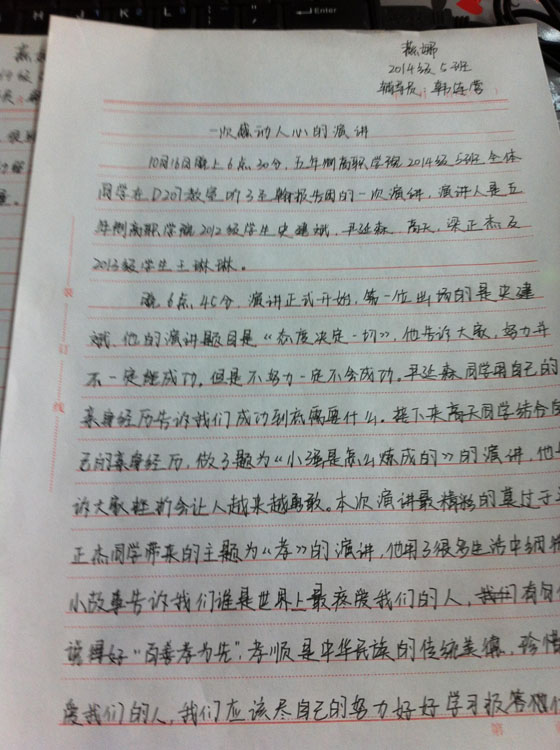 2014级5班
辅导员
一次感动人心的演讲
10月16日晚上6点30分,五年制高职学院2014级5班全体
同学在D207教室听了至翰报告团的一次演讲,演讲人是五
年制高职学院2012级学生史建斌、尹延森、高天、梁正杰及
2013级学生王琳琳。
晚6点45分,演讲正式开始,第一位出场的是史建
斌,他的演讲题目是“态度决定一切”,他告诉大家,努力并
不一定能成功,但是不努力一定不会成功。尹延森同学用自己的
亲身经历告诉我们成功到底需要什么。接下来高天同学结合自
己的亲身经历,做了题为“小强是怎么炼成的”的演讲,他告
诉大家挫折会让人越来越勇敢。本次演讲最精彩的莫过于梁
正杰同学带来的主题为“孝”的演讲,他用了很多生活中
小故事告诉我们谁是世界上最疼爱我们的人,有句
得好“百善孝为先”,孝顺是中华民族的传统美德,珍惜
爱我们的人,我们应该尽自己的努力好好学习报答他们
装
订
线
第
Enter